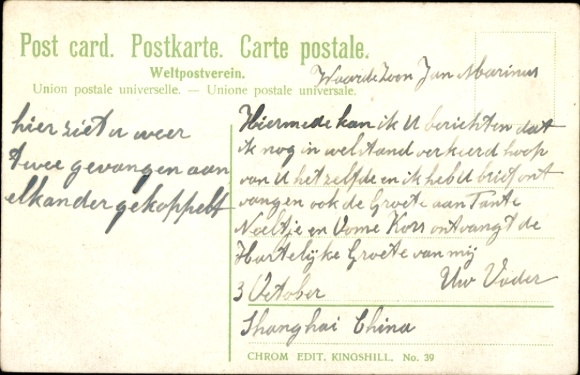 Post card. Postkarte. Carte postale.
Weltpostverein.
Union postale universelle. — Unione postale universale.
Waarde Zoon Jan Marinus
hier ziet u weer
twee gevangen aan
elkander gekoppelt
Hiermede kan ik U berichten dat
ik nog in welstand verkeerd hoop
van U het zelfde en ik heb U brief ont
vangen ook de Groete aan Tante
Neeltje en Oome Kors ontvangt de
Hartelijke Groete van mij
3 October Uw Vader
Shanghai China
CHROM EDIT, KINGSHILL, No. 39